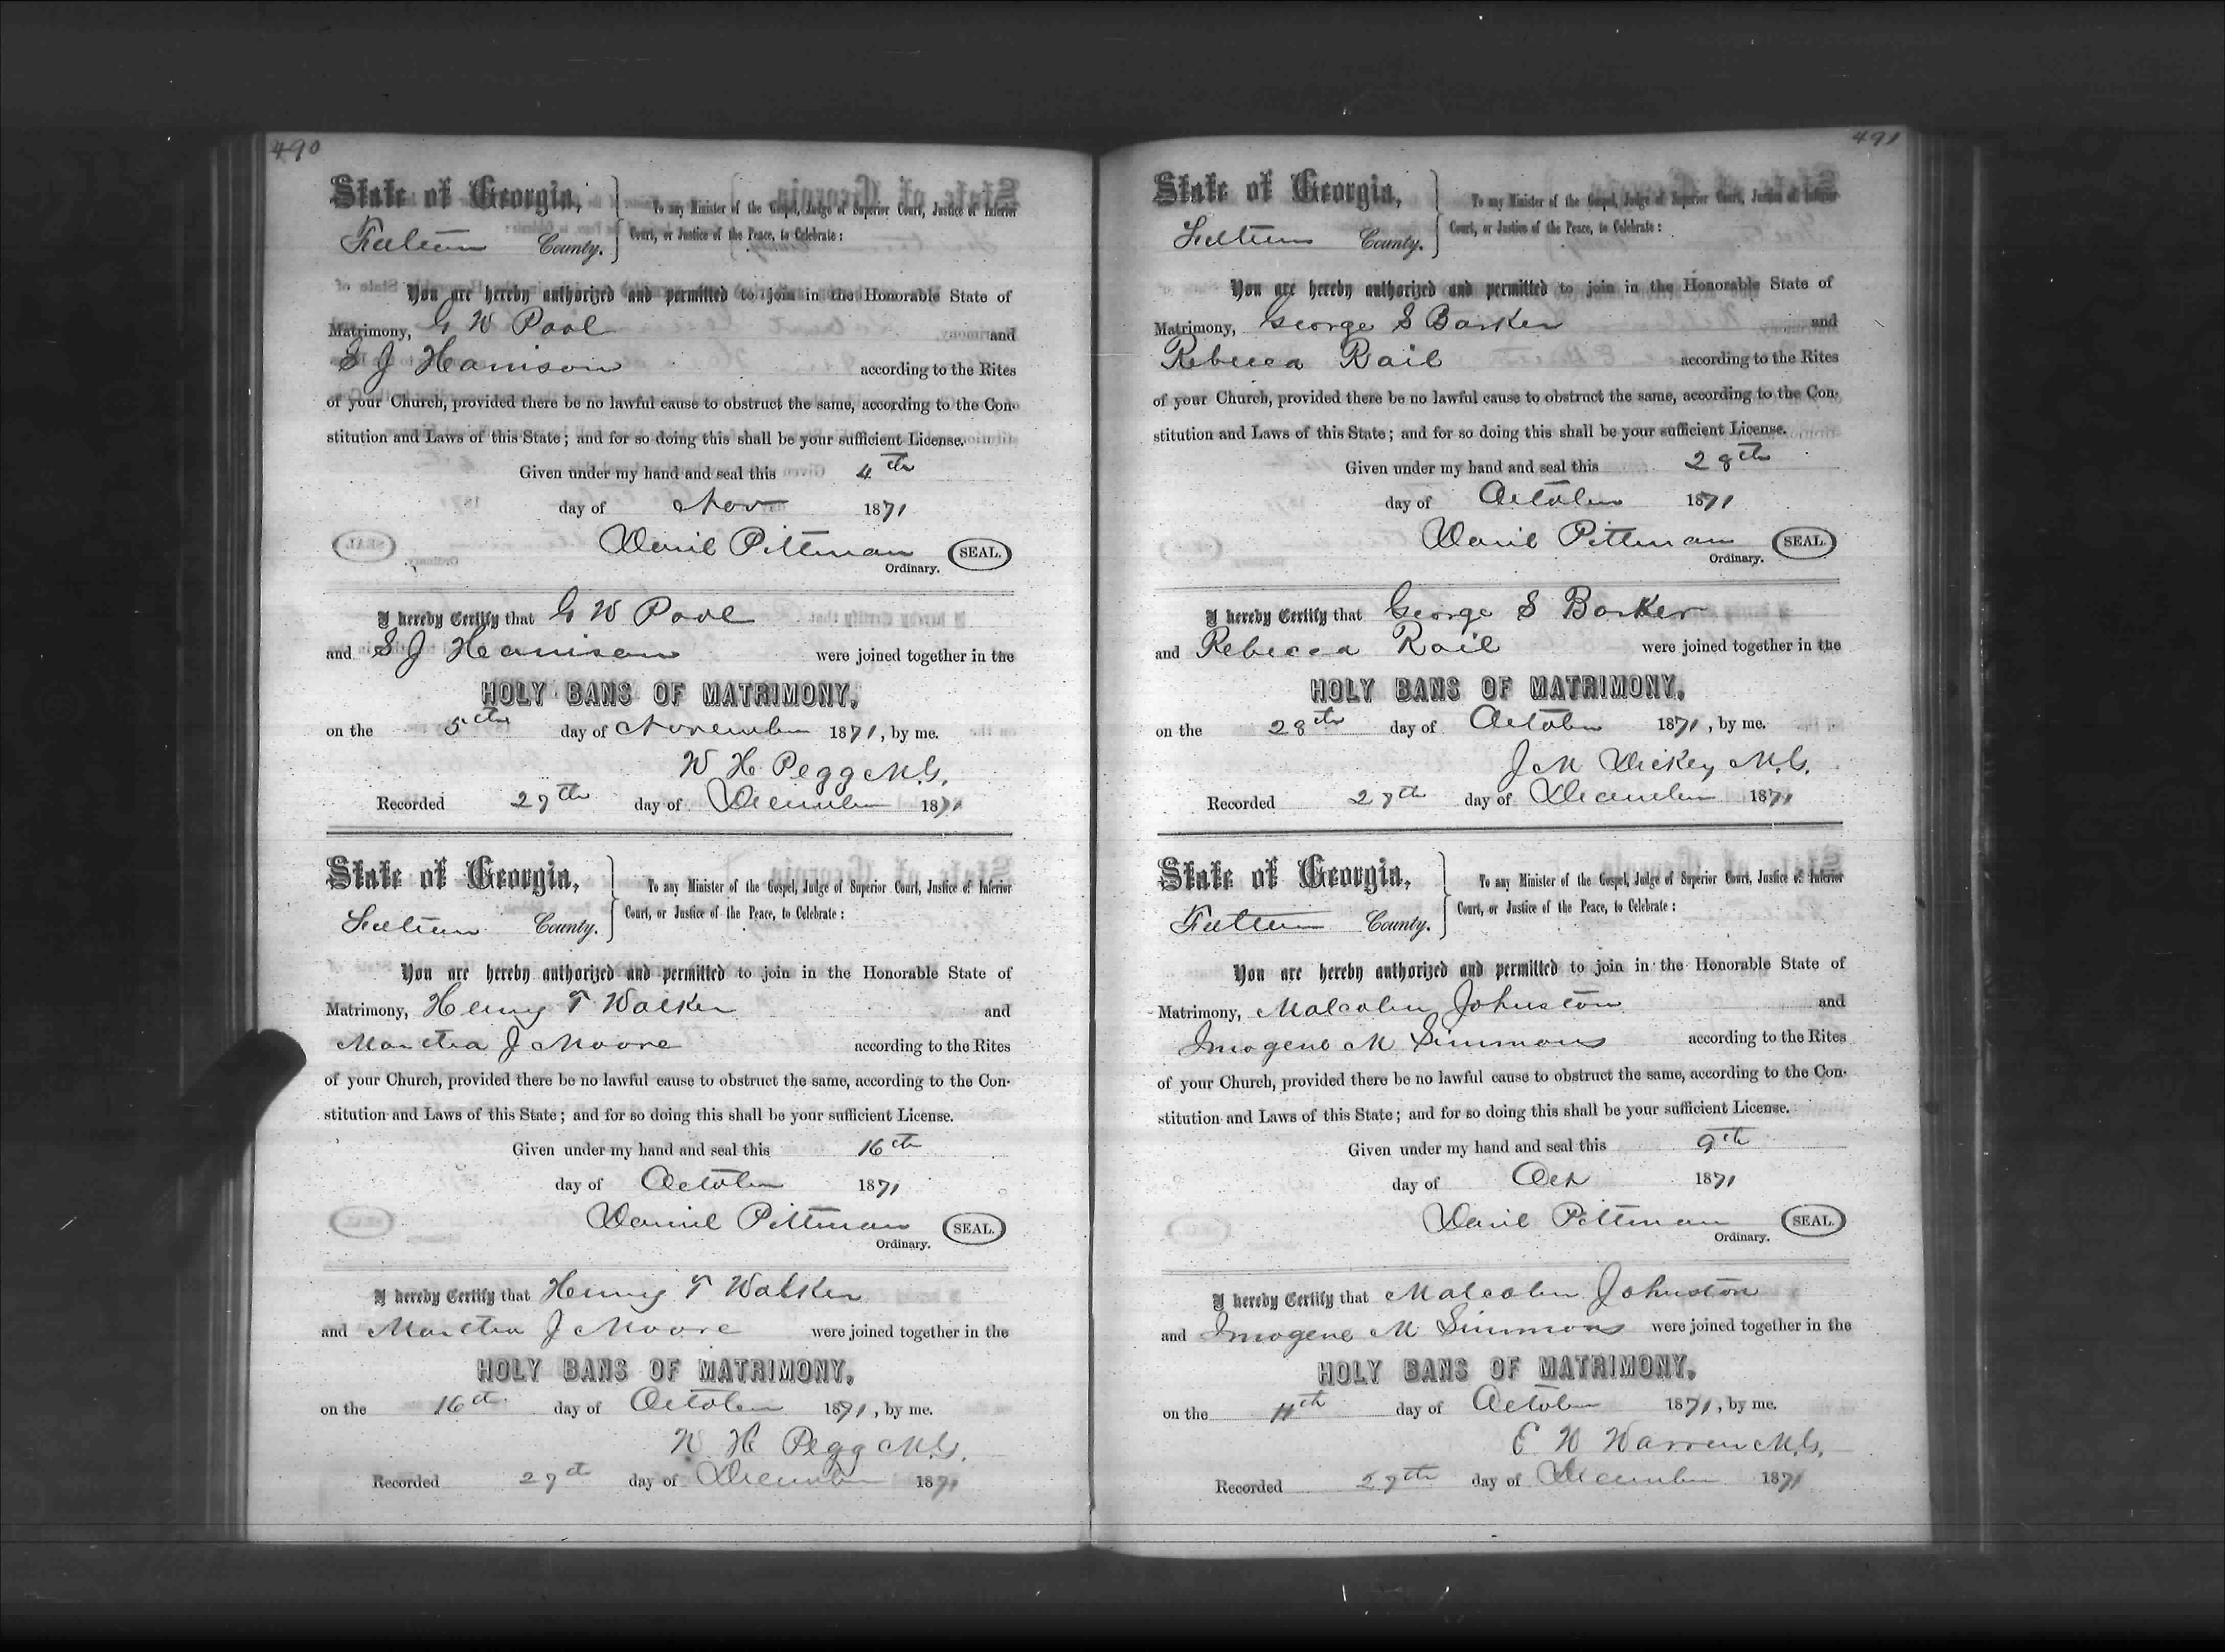 490
State of Georgia,
Fulton County.
To any Minister of the Gospel, Judge of Superior Court, Justice of Inferior
Court, or Justice of the Peace, to Celebrate:
You are hereby authorized and permitted to join in the Honorable State of
Matrimony, G W Pool and
S J Harrison according to the Rites
of your Church, provided there be no lawful cause to obstruct the same, according to the Con-
stitution and Laws of this State; and for so doing this shall be your sufficient License.
Given under my hand and seal this 4th
day of Nov 1871
Daniel Pittman SEAL.
Ordinary.
I hereby Certify that G W Pool
and S J Harrison were joined together in the
HOLY BANS OF MATRIMONY,
on the 5th day of November 1871, by me.
W H Pegg M.G.
Recorded 27th day of December 1871
State of Georgia,
Fulton County.
To any Minister of the Gospel, Judge of Superior Court, Justice of Inferior
Court, or Justice of the Peace, to Celebrate:
You are hereby authorized and permitted to join in the Honorable State of
Matrimony, Henry T Walker and
Martha J Moore according to the Rites
of your Church, provided there be no lawful cause to obstruct the same, according to the Con-
stitution and Laws of this State; and for so doing this shall be your sufficient License.
Given under my hand and seal this 16th
day of October 1871
Daniel Pittman SEAL.
Ordinary.
I hereby Certify that Henry T Walker
and Martha J Moore were joined together in the
HOLY BANS OF MATRIMONY,
on the 16th day of October 1871, by me.
W H Pegg M.G.
Recorded 27th day of December 1871
491
State of Georgia,
Fulton County.
To any Minister of the Gospel, Judge of Superior Court, Justice of Inferior
Court, or Justice of the Peace, to Celebrate:
You are hereby authorized and permitted to join in the Honorable State of
Matrimony, George S Barker and
Rebecca Rail according to the Rites
of your Church, provided there be no lawful cause to obstruct the same, according to the Con-
stitution and Laws of this State; and for so doing this shall be your sufficient License.
Given under my hand and seal this 28th
day of October 1871
Daniel Pittman SEAL.
Ordinary.
I hereby Certify that George S Barker
and Rebecca Rail were joined together in the
HOLY BANS OF MATRIMONY,
on the 28th day of October 1871, by me.
J M Dickey M.G.
Recorded 27th day of December 1871
State of Georgia,
Fulton County.
To any Minister of the Gospel, Judge of Superior Court, Justice of Inferior
Court, or Justice of the Peace, to Celebrate:
You are hereby authorized and permitted to join in the Honorable State of
Matrimony, Malcolm Johnston and
Imogene M Simmons according to the Rites
of your Church, provided there be no lawful cause to obstruct the same, according to the Con-
stitution and Laws of this State; and for so doing this shall be your sufficient License.
Given under my hand and seal this 9th
day of Oct 1871
Daniel Pittman SEAL.
Ordinary.
I hereby Certify that Malcolm Johnston
and Imogene M Simmons were joined together in the
HOLY BANS OF MATRIMONY,
on the 11th day of October 1871, by me.
E W Warren M.G.
Recorded 27th day of December 1871